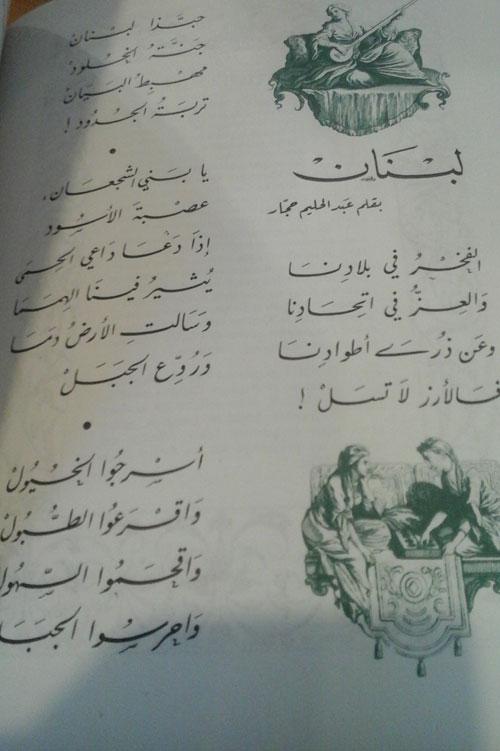 لبْنَان
بقلم عبد الحليم حجّار
الفخرُ في بلادِنَا
وَالعِزُّ في اتِحَادِنا
وعَن ذُرَے أطوادِنَا
فَالأرز لاَ تسَلْ !
حبَّذا لبْنَانُ
جَنَّةُ الخلودْ
مهْبِطُ البَيَانْ
تربَةُ الجُدُود !
•
يا بَني الشجعَان،
عصْبَةَ الأسُود
إذَا دَعَا دَاعِي الحِمَى
يُثيرُ فينَا الهِمَمَا
وَسَالتِ الأرضُ دَمَا
وَرُوِّع الجَبَلْ
•
أسْرجُوا الخيُولْ
وَاقرَعُوا الطُّبُولْ
وَاقحَمُوا السّهو
وَاحرسُوا الجبَا